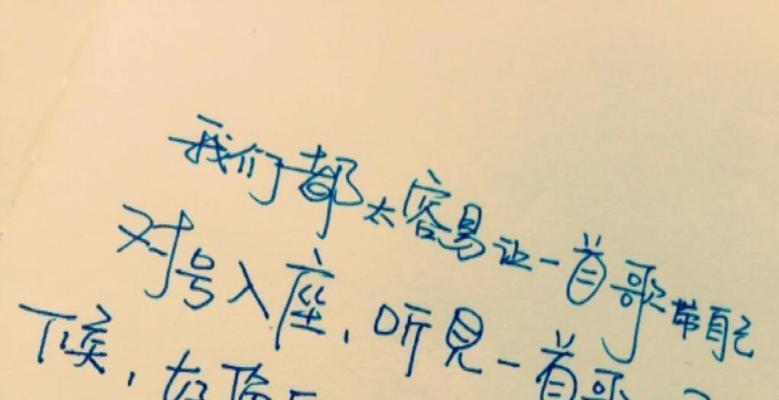 我们都太容易让一首歌带自己
对号入座，听见一首歌
候，在